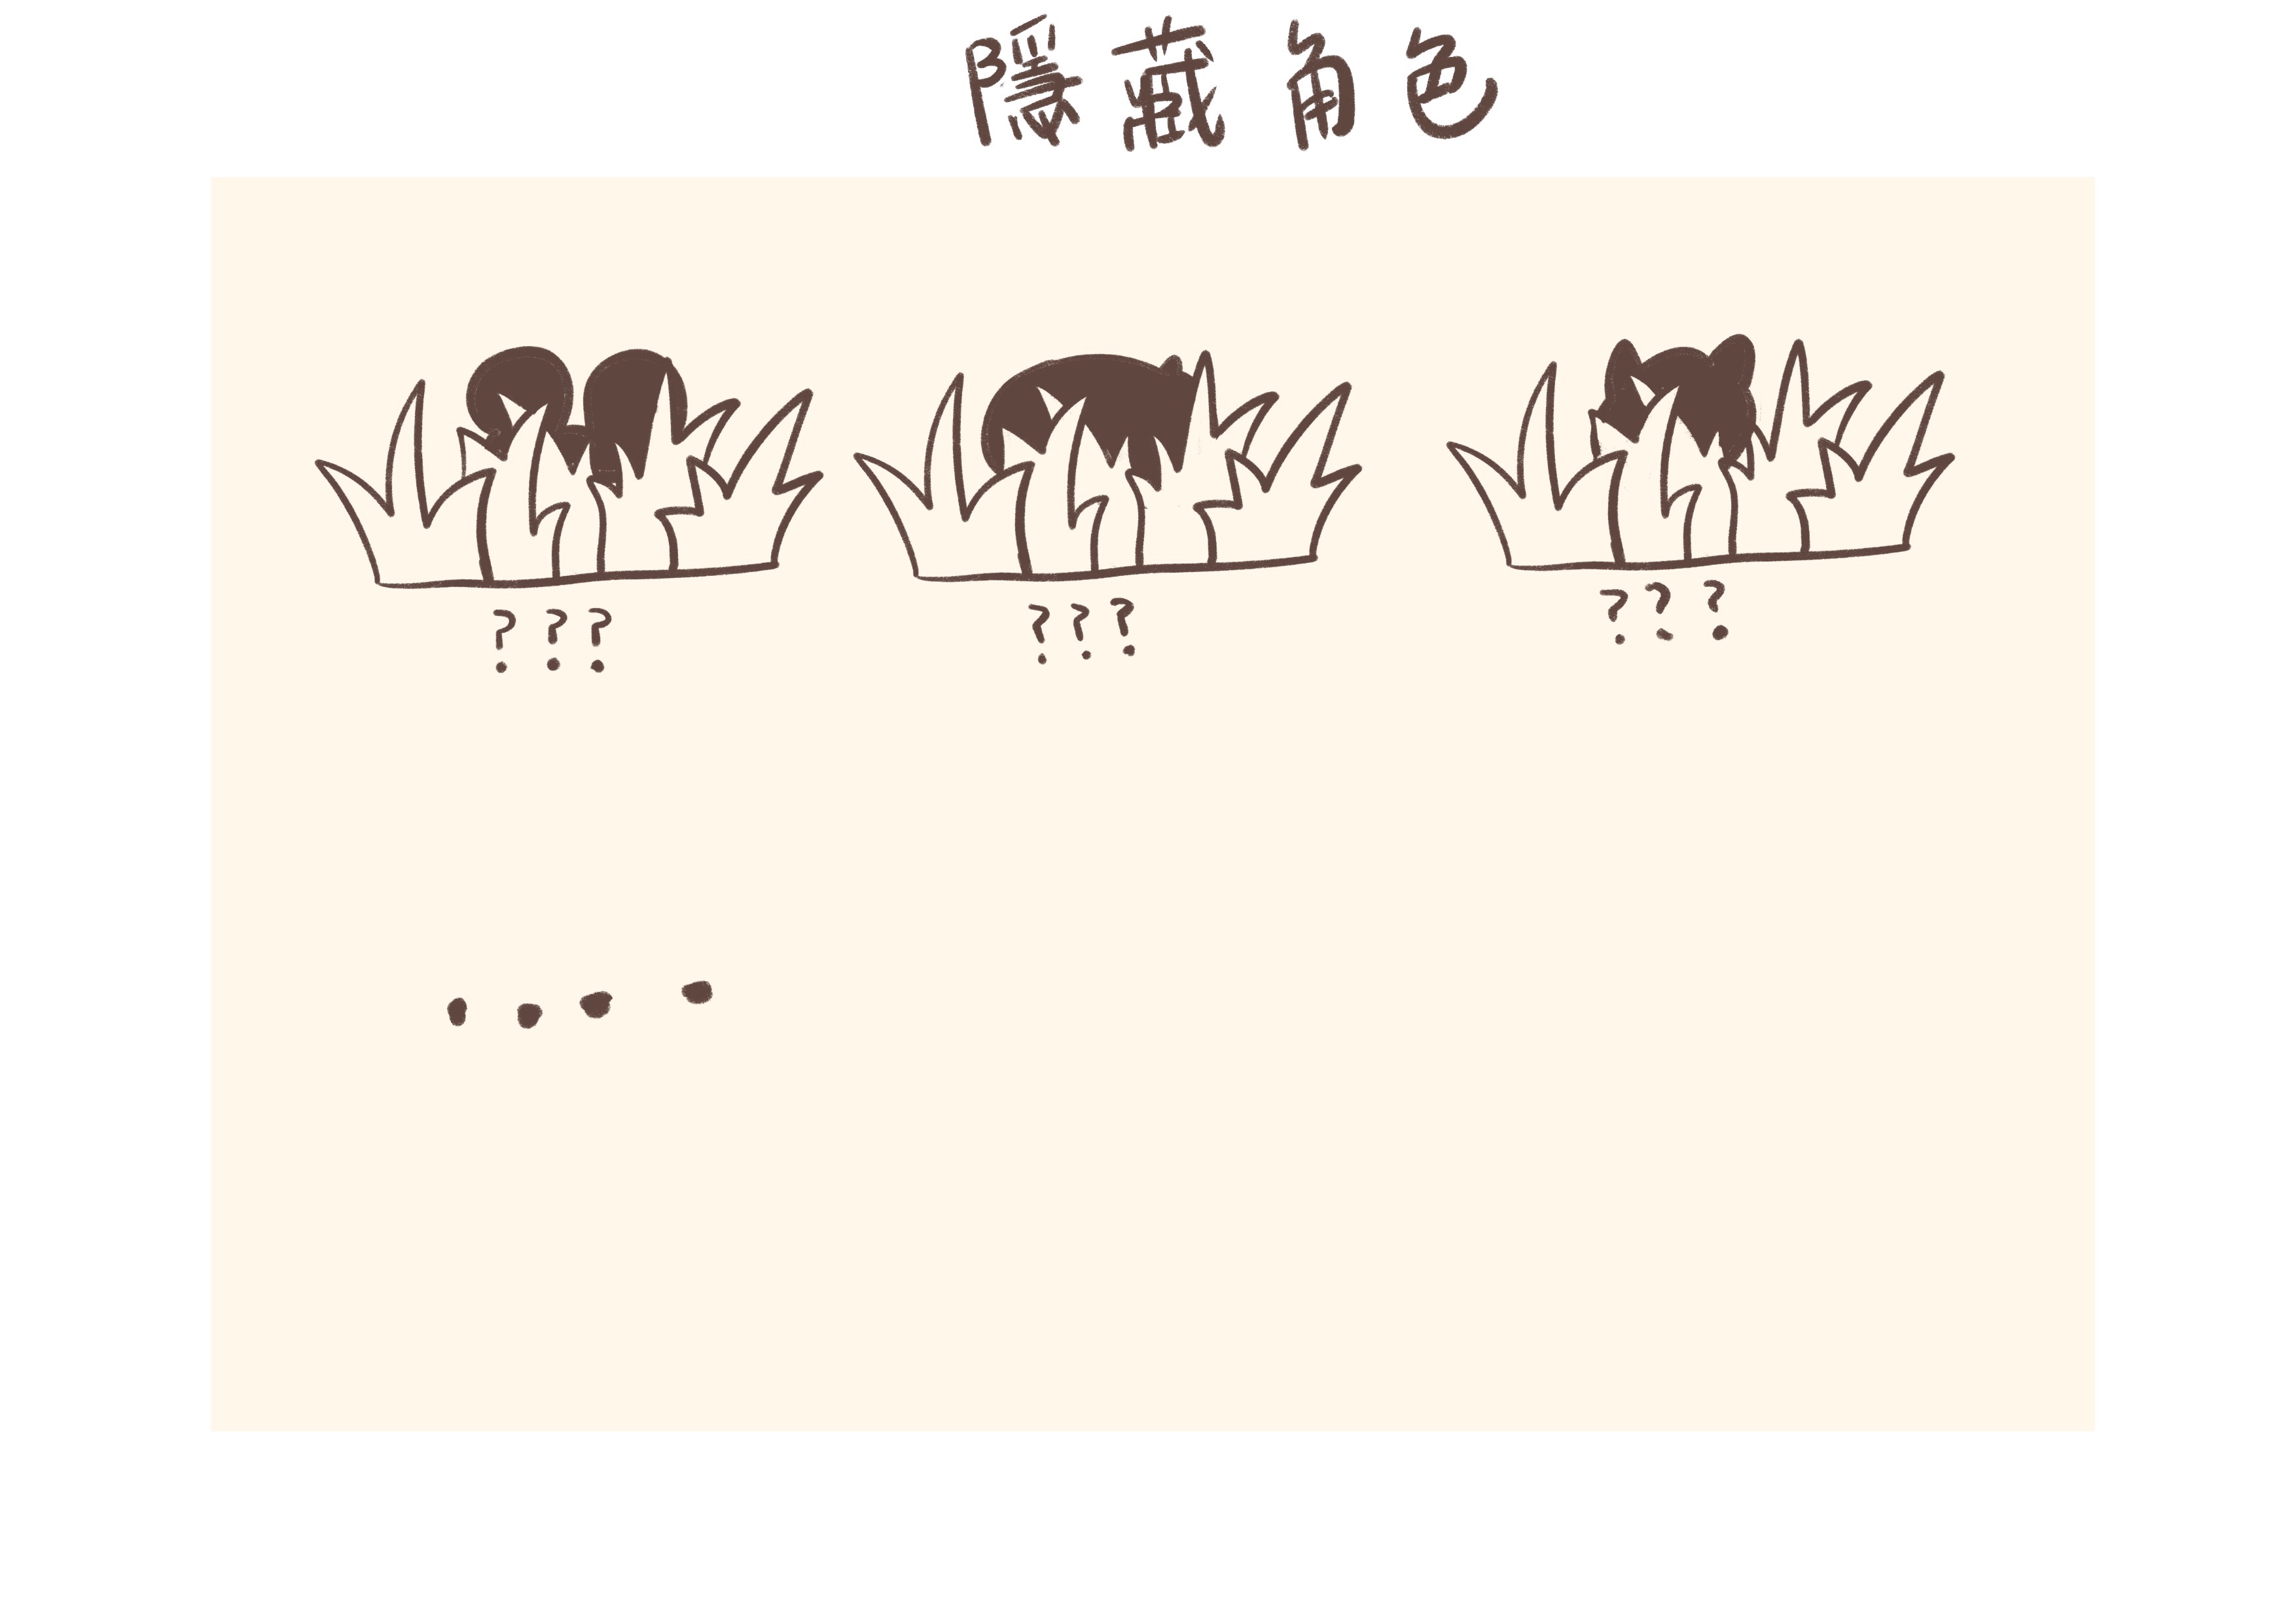 隱藏角色
??? ??? ???
....